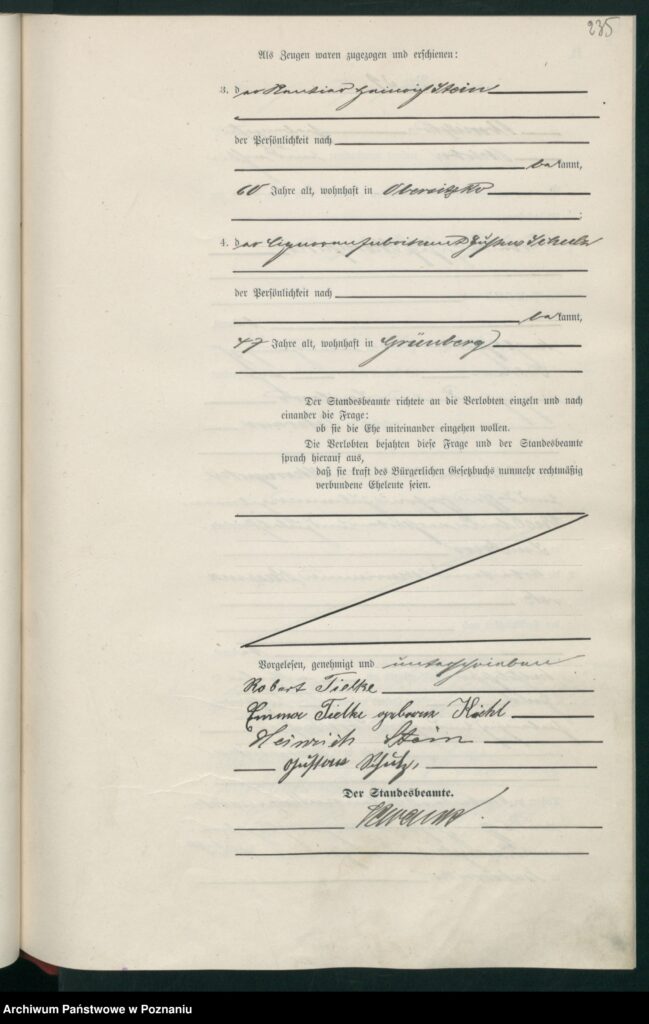 235
Als Zeugen waren zugezogen und erschienen:
3. der Rentier Heinrich Stein
der Persönlichkeit nach
bekannt,
60 Jahre alt, wohnhaft in Obersitzko
;
4. der Cigarrenfabrikant Gustav Schulz
der Persönlichkeit nach
bekannt,
47 Jahre alt, wohnhaft in Grünberg
Der Standesbeamte richtete an die Verlobten einzeln und nach
einander die Frage:
ob sie die Ehe miteinander eingehen wollen.
Die Verlobten bejahten diese Frage und der Standesbeamte
sprach hierauf aus,
daß sie kraft des Bürgerlichen Gesetzbuchs nunmehr rechtmäßig
verbundene Eheleute seien.
Vorgelesen, genehmigt und unterschrieben
Robert Tielke
Emma Tielke geboren
Heinrich Stein
Gustav Schulz,
Der Standesbeamte.
Archiwum Państwowe w Poznaniu